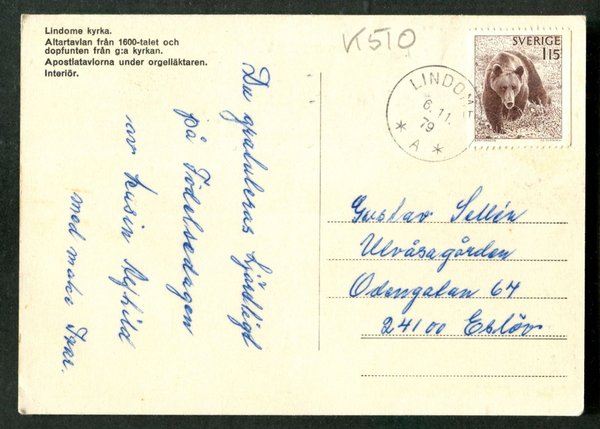 Lindome kyrka.
Altartavlan från 1600-talet och
dopfunten från g:a kyrkan.
Apostlatavlorna under orgelläktaren.
Interiör.
K510
SVERIGE
115
LINDOME
6.11.
79
* A *
Du gratuleras hjärtligt
på Födelsedagen
av kusin
med make Ivar.
Gustav Sellén
Ulvåsagården
Odengatan 64
24100 Eslöv